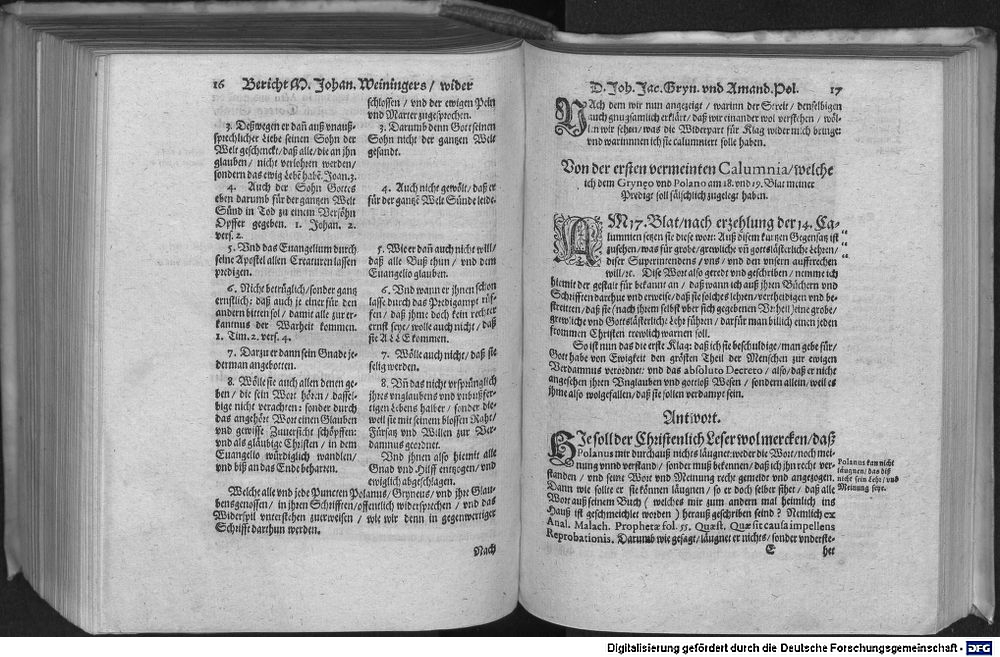 16 Bericht M. Johan. Weiningers / wider
schlossen / vnd der ewigen Pein
vnd Marter zugesprochen.
3. Deßwegen er dañ auß vnauß-
sprechlicher liebe seinen Sohn der
Welt geschenckt / daß alle / die an jhn
glauben / nicht verlohren werden /
sondern das ewig Lebẽ habẽ. Joan. 3.
4. Auch der Sohn Gottes
eben darumb für der gantzen Welt
Sünd in Tod zu einem Versöhn
Opffer gegeben. 1. Johan. 2.
vers. 2.
5. Vnd das Euangelium durch
seine Apostel allen Creaturen lassen
predigen.
6. Nicht betrüglich / sonder gantz
ernstlich: daß auch je einer für den
andern bitten sol / damit alle zur er-
kantnus der Warheit kommen.
1. Tim. 2. vers. 4.
7. Darzu er dann sein Gnade je-
derman angebotten.
8. Wölle sie auch allen denen ge-
ben / die sein Wort hören / dassel-
bige nicht verachten: sonder durch
das angehört Wort einen Glauben
vnd gewisse Zuuersicht schöpffen:
vnd als gläubige Christen / in dem
Euangelio würdiglich wandlen /
vnd biß an das Ende beharren.
3. Darumb denn Gott seinen
Sohn nicht der gantzen Welt
gesandt.
4. Auch nicht gewölt / daß er
für der gantzẽ Welt Sünde leide.
5. Wie er dañ auch nicht will /
daß alle Buß thun / vnd dem
Euangelio glauben.
6. Vnd wann er jhnen schon
lasse durch das Predigampt rüf-
fen / daß jhme doch kein rechter
ernst seye / wolle auch nicht / daß
sie ALLE kommen.
7. Wölle auch nicht / daß sie
selig werden.
8. Vñ das nicht vrsprünglich
jhres vnglaubens vnd vnbußfer-
tigen Lebens halber / sonder die-
weil sie mit seinem blossen Raht /
Fürsatz vnd Willen zur Ver-
damnus geordnet.
Vnd jhnen also hiemit alle
Gnad vnd Hilff entzogen / vnd
ewiglich abgeschlagen.
Welche alle vnd jede Puncten Polanus / Gryneus / vnd jhre Glau-
bensgenossen / in jhren Schrifften / offentlich widersprechen / vnd das
Widerspil vnterstehen zuerweisen / wie wir denn in gegenwertiger
Schrifft darthun werden.
Nach
D. Joh. Jac. Gryn. vnd Amand. Pol. 17
NAch dem wir nun angezeigt / warinn der Streit / denselbigen
auch gnugsamlich erklärt / daß wir einander wol verstehen / wöl-
len wir sehen / was die Widerpart für Klag wider mich bringe:
vnd warinnnen ich sie calumniert solle haben.
Von der ersten vermeinten Calumnia / welche
ich dem Grynæo vnd Polano am 18. vnd 19. Blat meiner
Predigt soll fälschlich zugelegt haben.
AM 17. Blat / nach erzehlung der 14. Ca-
lumnien setzen sie diese wort: Auß disem kurtzen Gegensatz ist “
zusehen / was für grobe / grewliche vñ gottslästerliche Lehren / “
diser Superintendens / vns / vnd den vnsern auffrechen “
will / ꝛc. Dise Wort also geredt vnd geschriben / nemme ich
hiemit der gestalt für bekannt an / daß wann ich auß jhren Büchern vnd
Schrifften darthue vnd erweise / daß sie solches lehren / vertheidigen vnd be-
streitten / daß sie (nach jhrem selbst vber sich gegebenen Vrtheil) eine grobe /
grewliche vnd Gottslästerliche Lehr führen / darfür man billich einen jeden
frommen Christen trewlich warnen soll.
So ist nun das die erste Klag: daß ich sie beschuldige / man gebe für /
Gott habe von Ewigkeit den grösten Theil der Menschen zur ewigen
Verdamnus verordnet: vnd das absoluto Decreto / also / daß er nicht
angesehen jhren Vnglauben vnd gottloß Wesen / sondern allein / weil es
jhme also wolgefallen / daß sie sollen verdampt sein.
Antwort.
HIe soll der Christenlich Leser wol mercken / daß
Polanus mir durchauß nichts läugnet: weder die Wort / noch mei-
nung vnnd verstand / sonder muß bekennen / daß ich jhn recht ver-
standen / vnd seine Wort vnd Meinung recht gemeldt vnd angezogen.
Dann wie solte er sie können läugnen / so er doch selber sihet / daß alle
Wort auß seinem Buch ( welches mir zum andern mal heimlich ins
Hauß ist geschmeichlet worden ) herauß geschriben seind ? Nemlich ex
Anal. Malach. Prophetæ fol. 55. Quæst. Quæ sit causa impellens
Reprobationis. Darumb wie gesagt / läugnet er nichts / sonder vnderste-
Polanus kan nicht
läugnen, das diß
nicht sein Lehr / vnd
Meinung seye.
E het
Digitalisierung gefördert durch die Deutsche Forschungsgemeinschaft - DFG